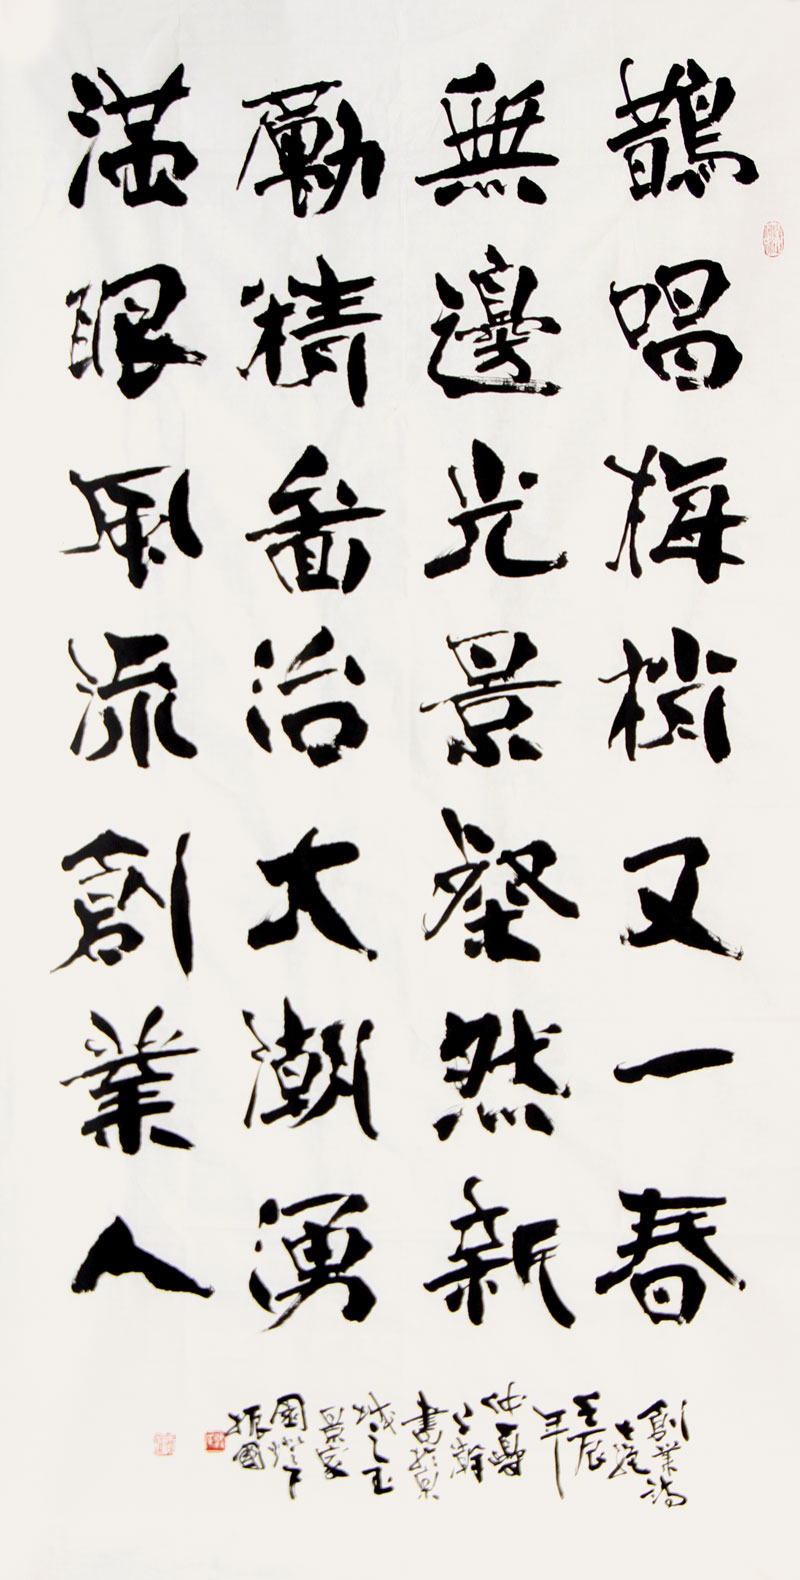 鵲唱梅梢又一春
無邊光景粲然新
勵精啚治大潮湧
満眼風流創業人
創業詩
壬辰
年
仲夏
之瀚
書於泉
城之玉
景家
園燈下
振國